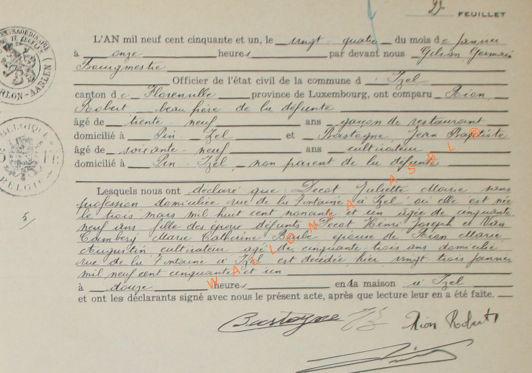 FEUILLET
L'AN mil neuf cent cinquante et un, le vingt quatre du mois de janvier
à onze heures par devant nous Gilson Germain
Bourgmestre
Officier de l'état civil de la commune d' Izel
canton de Florenville province de Luxembourg, ont comparu Rion
Robert beau frère de la défunte
âgé de trente neuf ans garçon de restaurant
domicilié à Pin Izel et Bastogne Jean Baptiste
âgé de soixante neuf ans cultivateur
domicilié à Pin Izel, non parent de la défunte
Lesquels nous ont déclaré que Docot Juliette Marie sans
profession domiciliée rue de la Fontaine à Izel où elle est née
le trois mars mil huit cent nonante et un âgée de cinquante
neuf ans fille des époux défunts Docot Henri Joseph et
Marie Catherine épouse de Rion Marie
Augustin cultivateur âgé de cinquante trois ans domicilié
rue de la Fontaine à Izel est décédée hier vingt trois janvier
mil neuf cent cinquante et un
à douze heures en la maison à Izel
et ont les déclarants signé avec nous le présent acte, après que lecture leur en a été faite.
Bastogne JB Rion Robert
WALLONIA ASBL
BELGIQUE